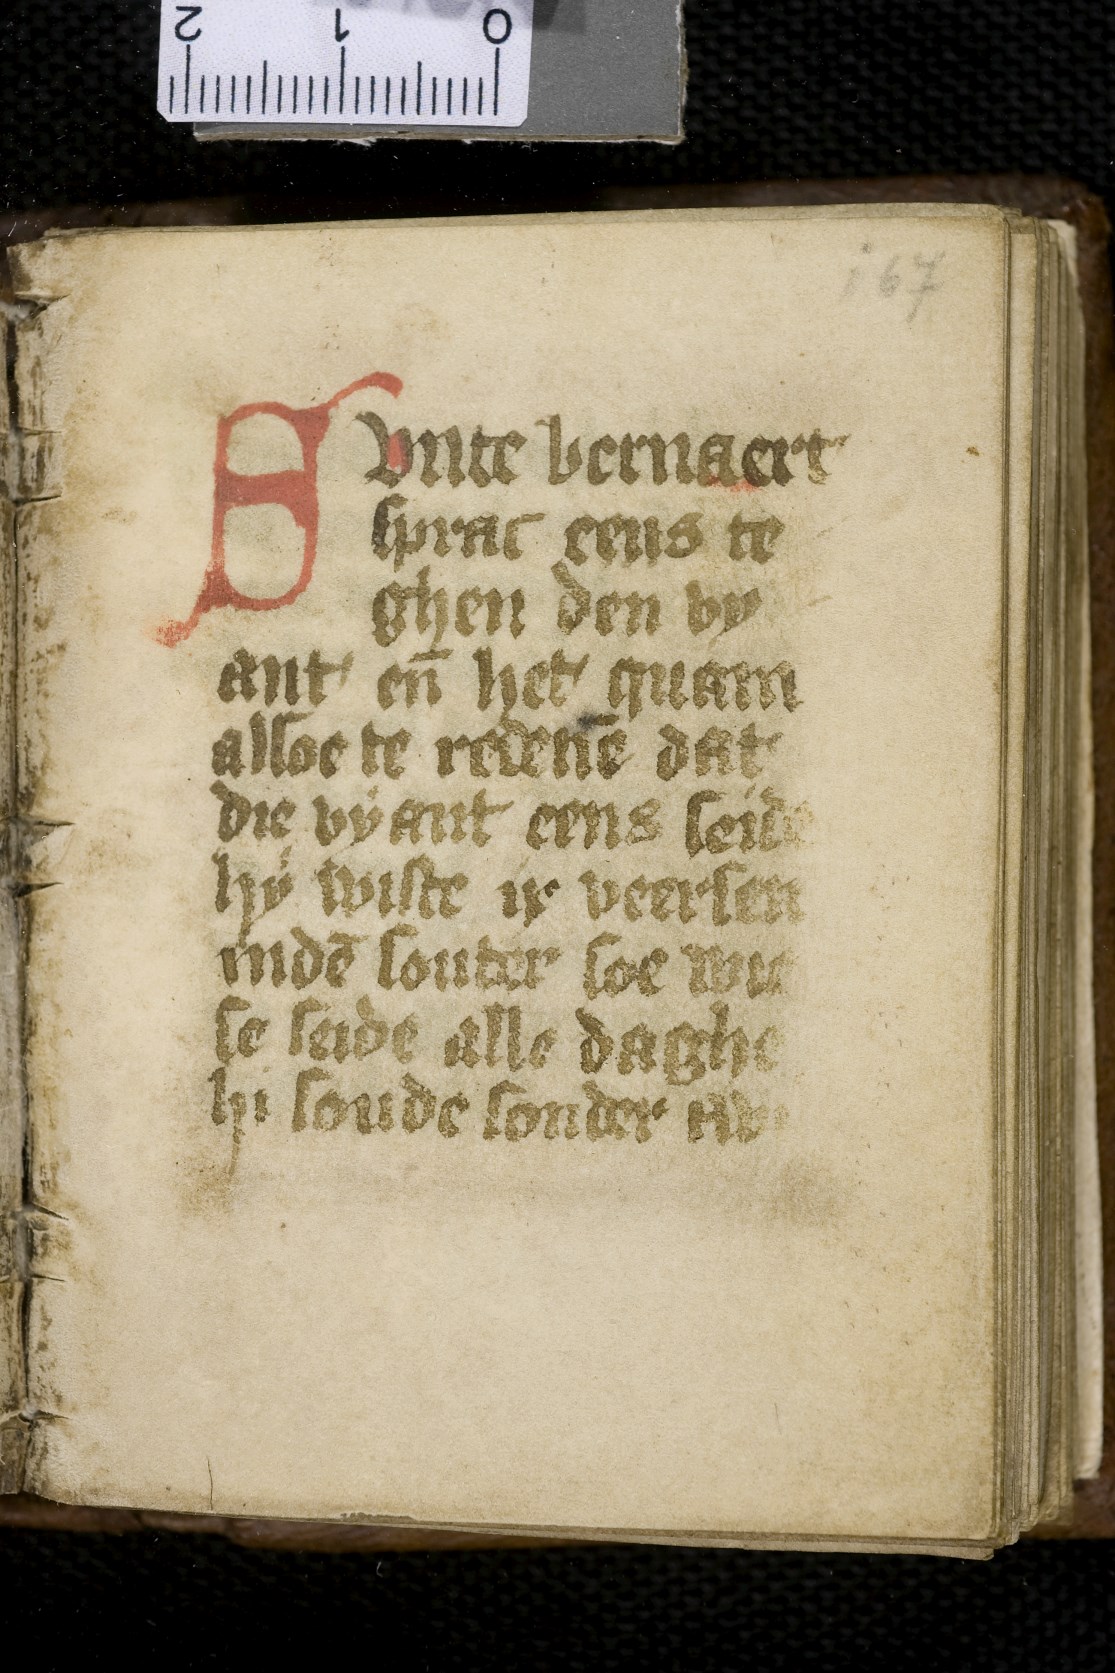 2 1 0
167
Sunte bernaert
sprac eens te
ghen den vy
ant en̄ het quam
alsoe te redenē dat
die vÿant eens seide
hÿ wiste ix veersen
indē souter soe wie
se seide alle daghe
hi soude sonder